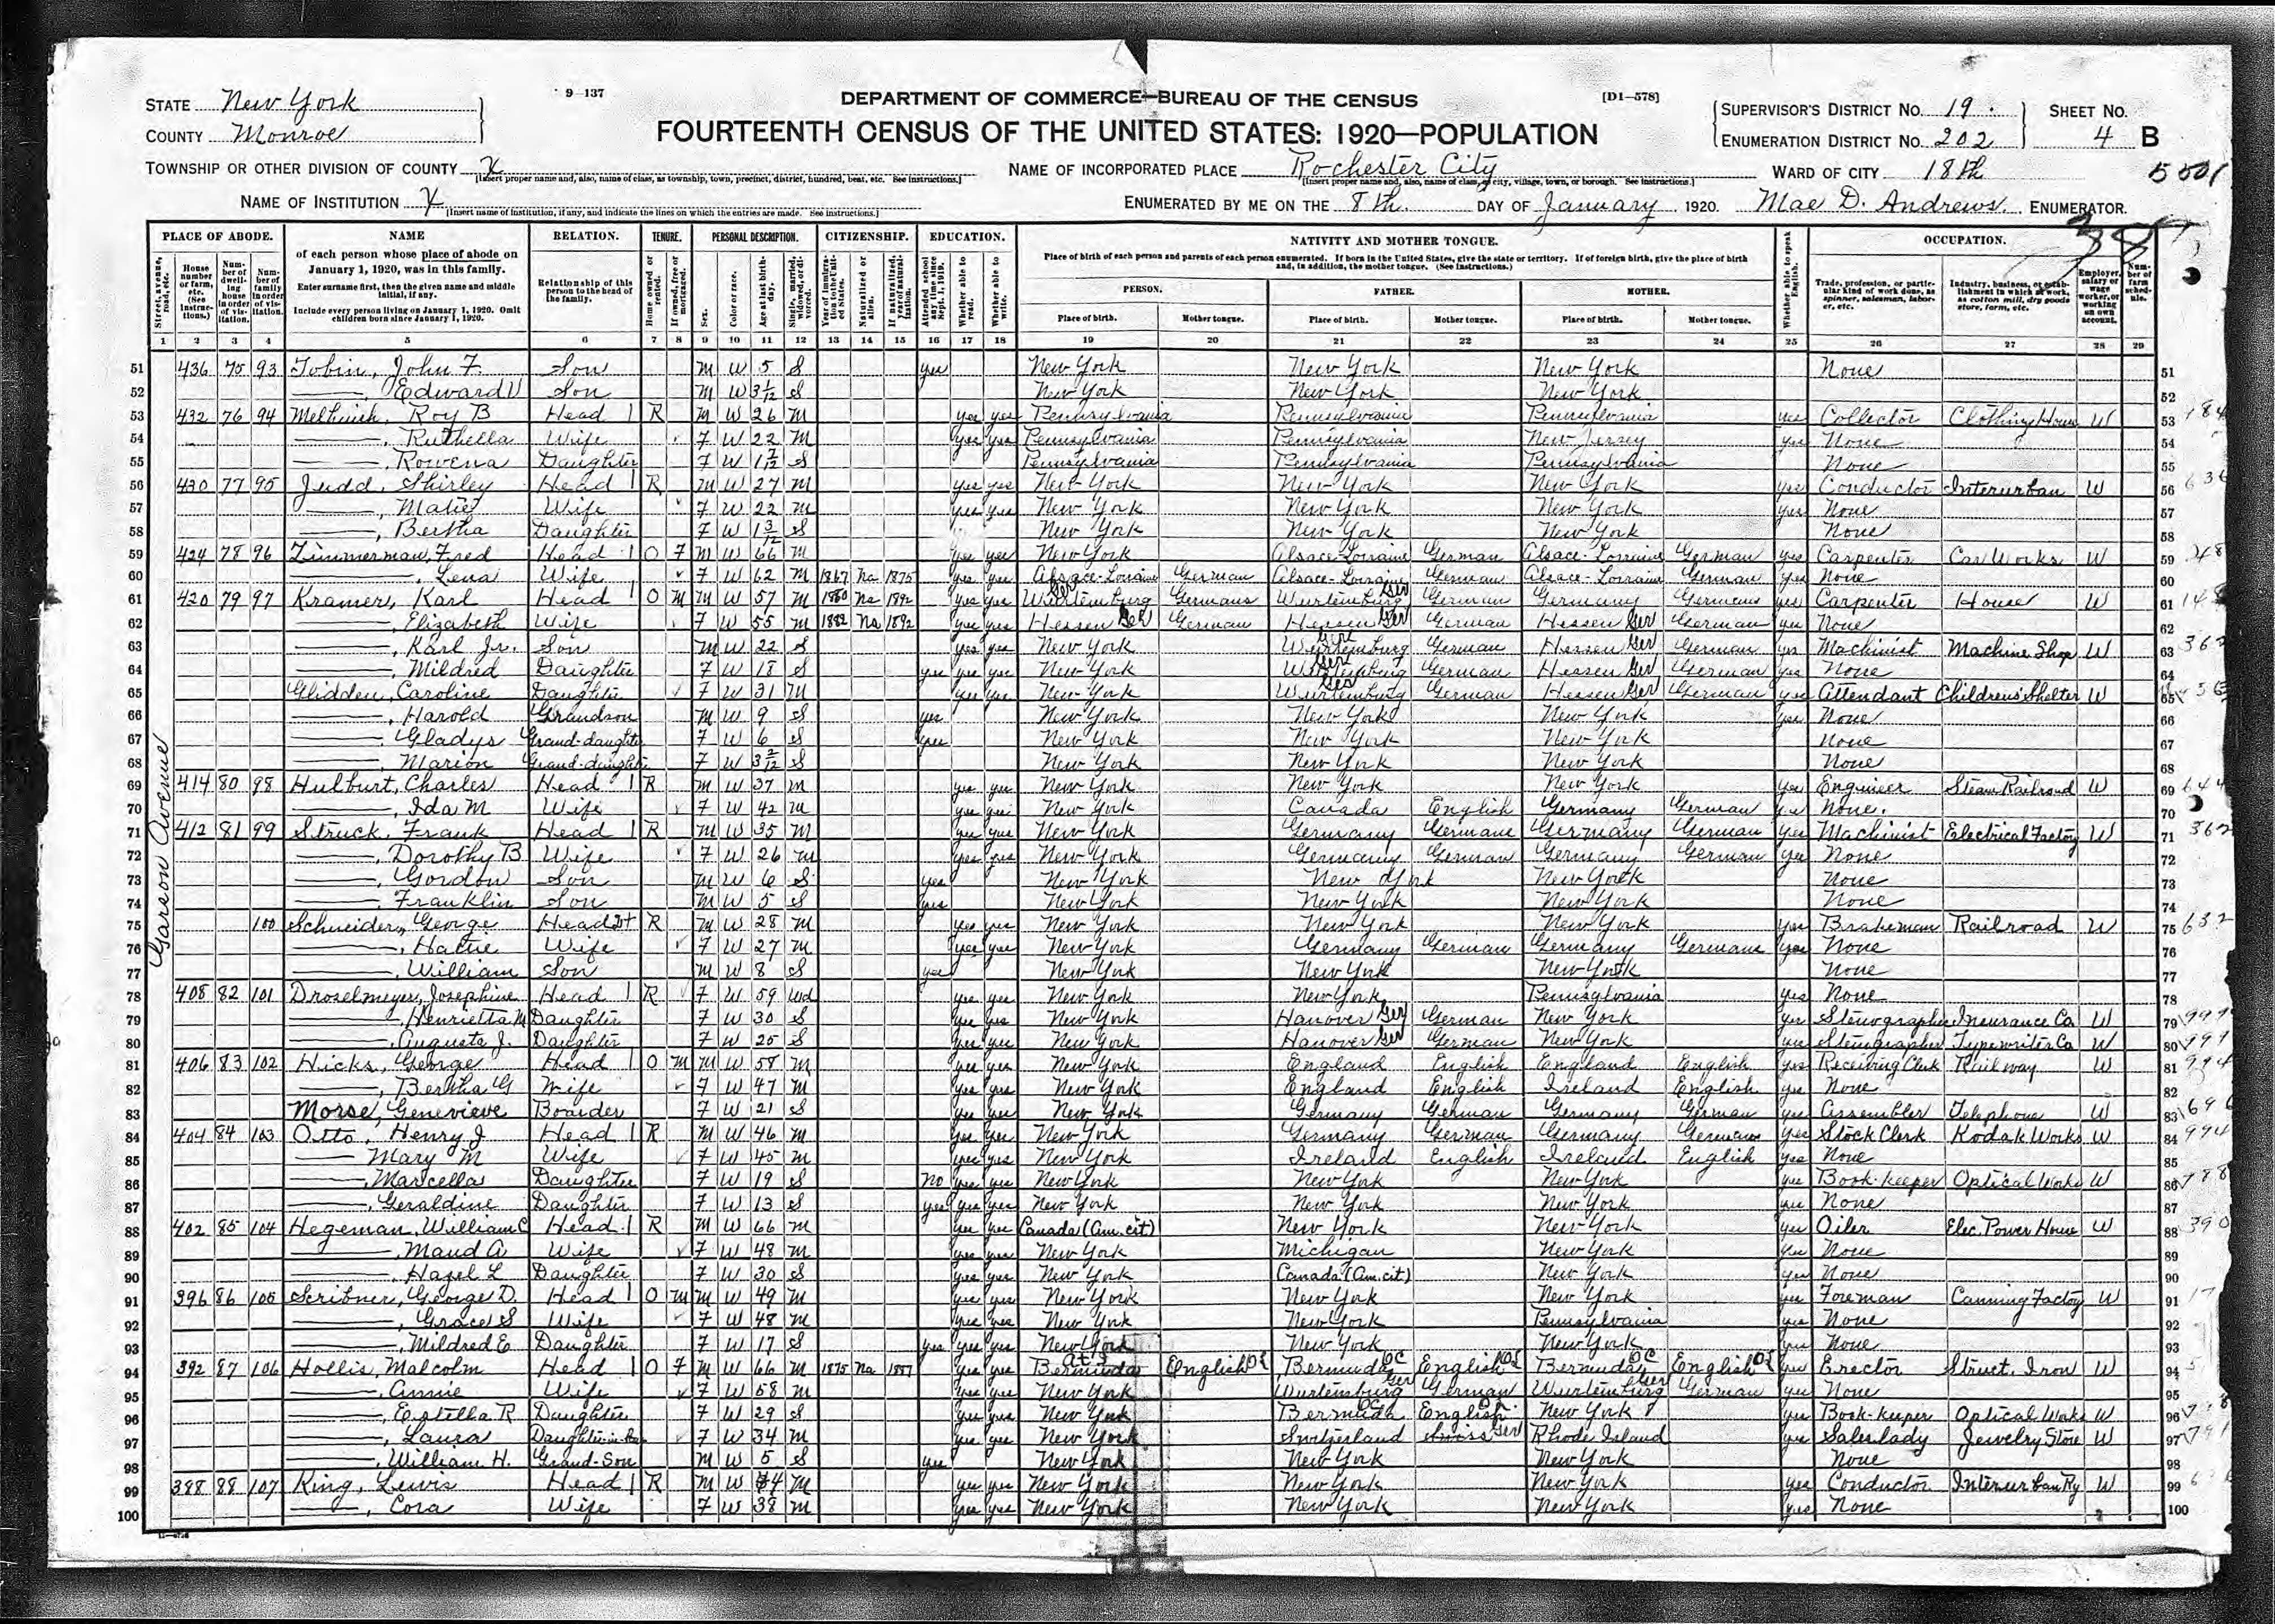 STATE New York
9-137
DEPARTMENT OF COMMERCE—BUREAU OF THE CENSUS
[D1-578]
SUPERVISOR'S DISTRICT NO. 19. SHEET NO.
COUNTY Monroe
FOURTEENTH CENSUS OF THE UNITED STATES: 1920—POPULATION
ENUMERATION DISTRICT NO. 202 4 B
TOWNSHIP OR OTHER DIVISION OF COUNTY X
[Insert proper name and, also, name of class, as township, town, precinct, district, hundred, beat, etc. See instructions.]
NAME OF INCORPORATED PLACE Rochester City
[Insert proper name and, also, name of class, as city, village, town, or borough. See instructions.]
WARD OF CITY 18th
5501
NAME OF INSTITUTION X
[Insert name of institution, if any, and indicate the lines on which the entries are made. See instructions.]
ENUMERATED BY ME ON THE 8th. DAY OF January, 1920. Mae D. Andrews. ENUMERATOR.
PLACE OF ABODE. NAME RELATION. TENURE. PERSONAL DESCRIPTION. CITIZENSHIP. EDUCATION. NATIVITY AND MOTHER TONGUE. OCCUPATION.
of each person whose place of abode on January 1, 1920, was in this family.
Enter surname first, then the given name and middle initial, if any.
Include every person living on January 1, 1920. Omit children born since January 1, 1920.
Relationship of this person to the head of the family.
Place of birth of each person and parents of each person enumerated. If born in the United States, give the state or territory. If of foreign birth, give the place of birth and, in addition, the mother tongue. (See Instructions.)
PERSON. FATHER. MOTHER.
Place of birth. Mother tongue. Place of birth. Mother tongue. Place of birth. Mother tongue.
Whether able to speak English.
Trade, profession, or particular kind of work done, as spinner, salesman, laborer, etc.
Industry, business, or establishment in which at work, as cotton mill, dry goods store, farm, etc.
Employer, salary or wage worker, or working on own account.
Number of farm schedule.
1 2 3 4 5 6 7 8 9 10 11 12 13 14 15 16 17 18 19 20 21 22 23 24 25 26 27 28 29
Garson Avenue
51 436 75 93 Tobin, John F. Son M W 5 S yes New York New York New York None 51
52 Edward V Son M W 3 1/12 S New York New York New York 52
53 432 76 94 Roy B Head 1 R M W 26 M yes yes Pennsylvania Pennsylvania Pennsylvania yes Collector Clothing House W 53
54 Ruthella Wife F W 22 M yes yes Pennsylvania Pennsylvania New Jersey yes None 54
55 Rowena Daughter F W 1 7/12 S Pennsylvania Pennsylvania Pennsylvania None 55
56 430 77 95 Judd, Shirley Head 1 R M W 27 M yes yes New York New York New York yes Conductor Interurban W 56
57 Matie Wife F W 22 M yes yes New York New York New York yes None 57
58 Bertha Daughter F W 1 3/12 S New York New York New York None 58
59 424 78 96 Zimmerman, Fred Head 1 O F M W 66 M yes yes New York Alsace-Lorraine German Alsace-Lorraine German yes Carpenter Car Works W 59
60 Lena Wife F W 62 M 1867 Na 1875 yes yes Alsace-Lorraine German Alsace-Lorraine German Alsace-Lorraine German yes None 60
61 420 79 97 Kramer, Karl Head 1 O M M W 57 M 1880 Na 1892 yes yes Wurtemburg Ger German Wurtemburg Ger German Germany German yes Carpenter House W 61
62 Elizabeth Wife F W 55 M 1882 Na 1892 yes yes Hessen Ger German Hessen Ger German Hessen Ger German yes None 62
63 Karl Jr. Son M W 22 S yes yes New York Wurtemburg Ger German Hessen Ger German yes Machinist Machine Shop W 63 362
64 Mildred Daughter F W 18 S yes yes yes New York Wurtemburg Ger German Hessen Ger German yes None 64
65 Glidden, Caroline Daughter F W 31 M yes yes New York Wurtemburg Ger German Hessen Ger German yes Attendant Childrens' Shelter W 65
66 Harold Grandson M W 9 S yes New York New York New York yes None 66
67 Gladys Grand-daughter F W 6 S yes New York New York New York None 67
68 Marion Grand-daughter F W 3 2/12 S New York New York New York None 68
69 414 80 98 Hulburt, Charles Head 1 R M W 37 M yes yes New York New York New York yes Engineer Steam Railroad W 69 644
70 Ida M Wife F W 42 M yes yes New York Canada English Germany German yes None. 70
71 412 81 99 Struck, Frank Head 1 R M W 35 M yes yes New York Germany German Germany German yes Machinist Electrical Factory W 71 362
72 Dorothy B Wife F W 26 M yes yes New York Germany German Germany German yes None 72
73 Gordon Son M W 6 S yes New York New York New York None 73
74 Franklin Son M W 5 S yes New York New York New York None 74
75 100 Schneider, George Head R M W 28 M yes yes New York New York New York yes Brakeman Railroad W 75 632
76 Hattie Wife F W 27 M yes yes New York Germany German Germany German yes None 76
77 William Son M W 8 S yes New York New York New York None 77
78 408 82 101 Droselmeyer, Josephine Head 1 R F W 59 Wd yes yes New York New York Pennsylvania yes None 78
79 Henrietta M Daughter F W 30 S yes yes New York Hanover Ger German New York yes Stenographer Insurance Co W 79
80 Augusta J. Daughter F W 25 S yes yes New York Hanover Ger German New York yes Stenographer Typewriter Co W 80
81 406 83 102 Hicks, George Head 1 O M M W 58 M yes yes New York England English England English yes Receiving Clerk Railway W 81
82 Bertha G Wife F W 47 M yes yes New York England English Ireland English yes None 82
83 Morse, Genevieve Boarder F W 21 S yes yes New York Germany German Germany German yes Assembler Telephone W 83
84 404 84 103 Otto, Henry J Head 1 R M W 46 M yes yes New York Germany German Germany German yes Stock Clerk Kodak Works W 84 994
85 Mary M Wife F W 45 M yes yes New York Ireland English Ireland English yes None 85
86 Marcella Daughter F W 19 S No yes yes New York New York New York yes Book-keeper Optical Works W 86
87 Geraldine Daughter F W 13 S yes yes yes New York New York New York yes None 87
88 402 85 104 Hegeman, William C Head 1 R M W 66 M yes yes Canada (Am. cit) New York New York yes Oiler Elec. Power House W 88 390
89 Maud A Wife F W 48 M yes yes New York Michigan New York yes None 89
90 Hazel L Daughter F W 30 S yes yes New York Canada (Am. cit) New York yes None 90
91 396 86 105 Scribner, George D. Head 1 O M M W 49 M yes yes New York New York New York yes Foreman Canning Factory W 91
92 Grace S Wife F W 48 M yes yes New York New York Pennsylvania yes None 92
93 Mildred E Daughter F W 17 S yes yes yes New York New York New York yes None 93
94 392 87 106 Hollis, Malcolm Head 1 O F M W 66 M 1875 Na 1887 yes yes Bermuda English Bermuda English Bermuda English yes Erector Struct. Iron W 94
95 Annie Wife F W 58 M yes yes New York Wurtemburg Ger German Wurtemburg Ger German yes None 95
96 Estella R Daughter F W 29 S yes yes New York Bermuda English New York yes Book-keeper Optical Works W 96
97 Laura Daughter-in-law F W 34 M yes yes New York Switzerland Swiss Ger Rhode Island yes Saleslady Jewelry Store W 97
98 William H. Grand-Son M W 5 S yes New York New York New York None 98
99 388 88 107 King, Lewis Head 1 R M W M yes yes New York New York New York yes Conductor Interurban Ry W 99
100 Cora Wife F W 38 M yes yes New York New York New York yes None 100